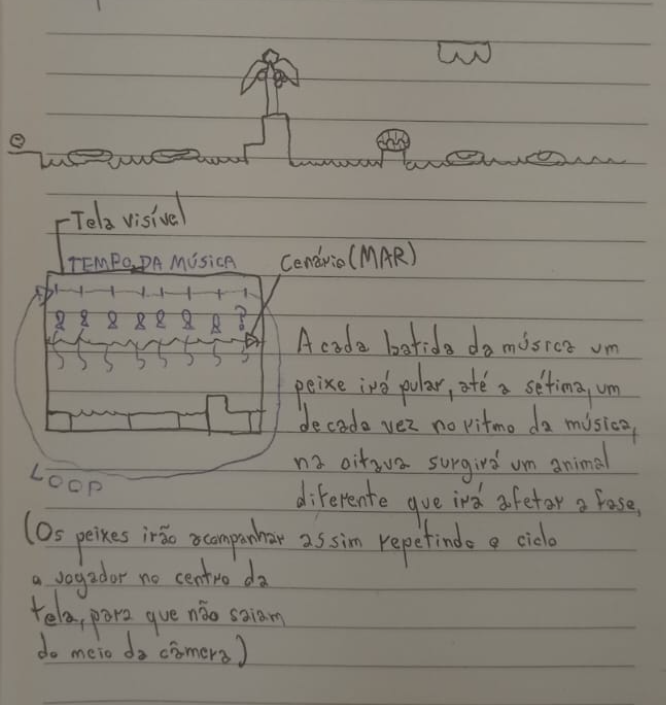 Tela visível
TEMPO DA MÚSICA
Cenário (MAR)
A cada batida da música um
peixe irá pular, até a sétima, um
de cada vez no ritmo da música,
na oitava surgirá um animal
diferente que irá afetar a fase,
assim repetindo o ciclo
LOOP
(Os peixes irão acompanhar
o jogador no centro da
tela, para que não saiam
do meio da câmera)